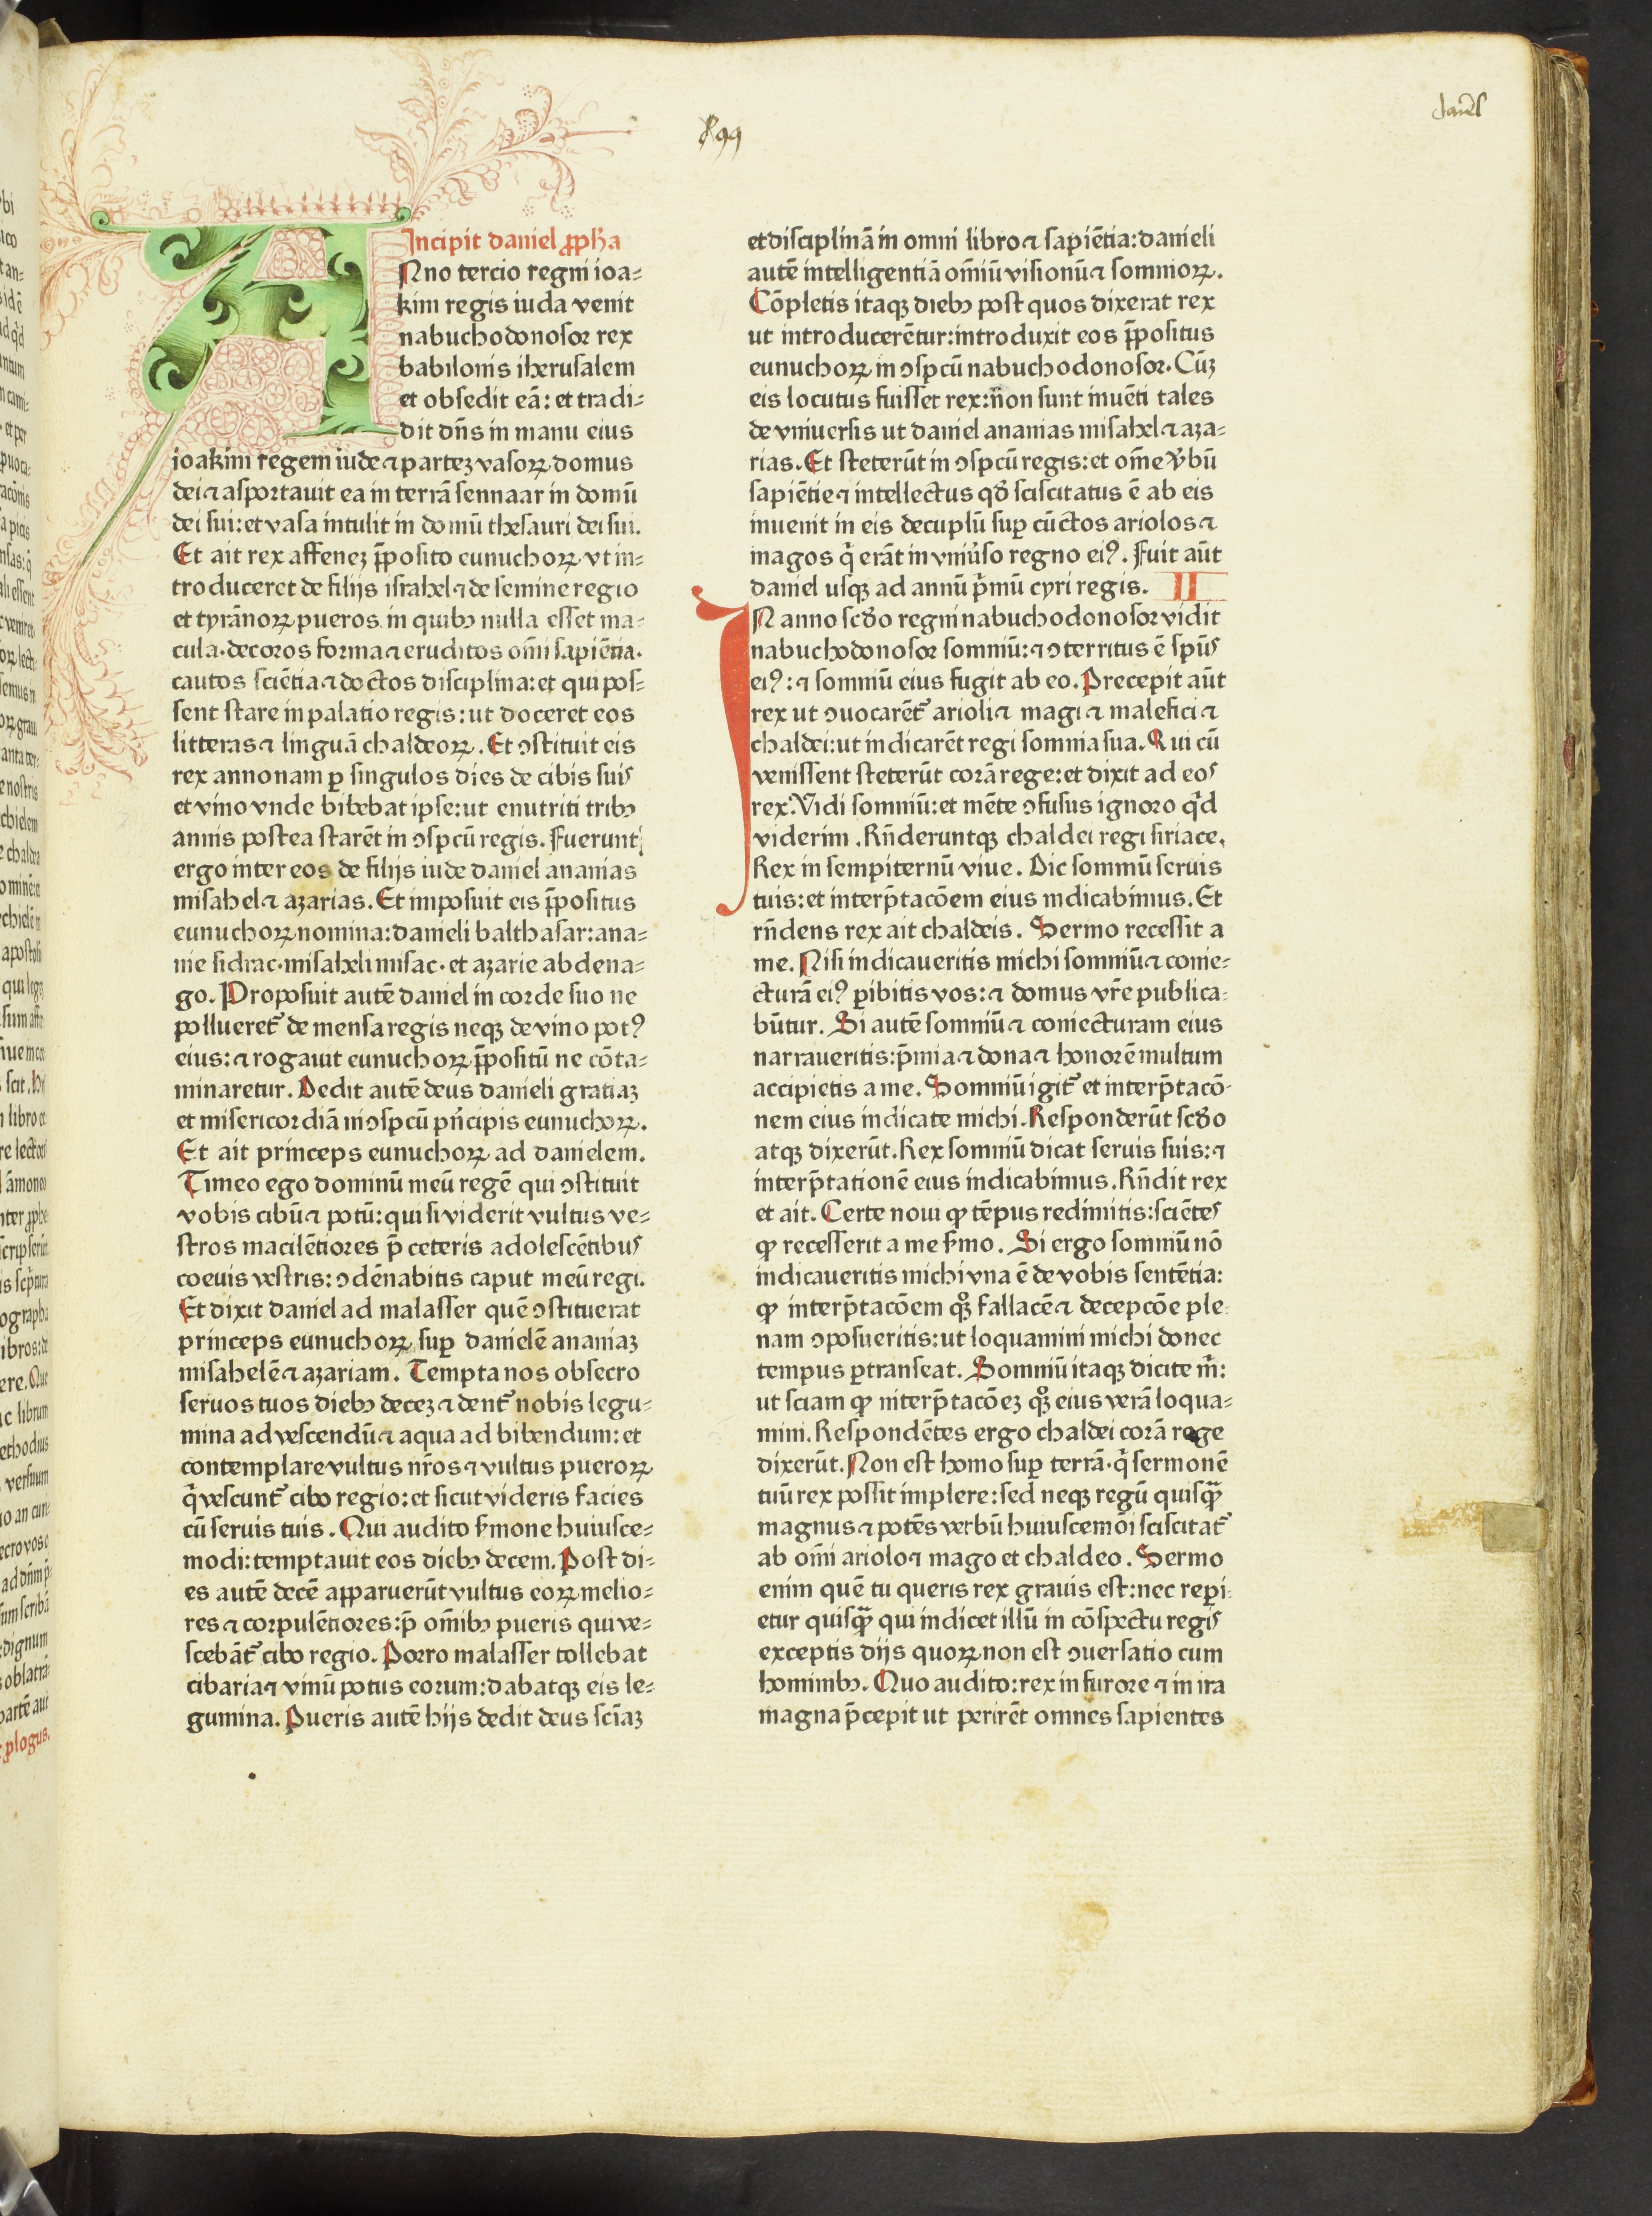 daniel
Incipit daniel ꝓpħa
ANno tercio regni ioa⸗
kim regis iuda venit
nabuchodonosor rex
babilonis iherusalem
et obsedit eā: et tradi⸗
dit dn̄s in manu eius
ioakim regem iude ⁊ partez vasoꝝ domus
dei ⁊ asportauit ea in terrā sennaar in domū
dei sui: et vasa intulit in domū thesauri dei sui.
Et ait rex affenez p̄posito eunuchoꝝ vt in⸗
troduceret de filijs israhel ⁊ de semine regio
et tyrānoꝝ pueros in quibꝰ nulla esset ma⸗
cula·decoros forma ⁊ eruditos om̄i sapiētia·
cautos sciētia ⁊ doctos disciplina: et qui pos⸗
sent stare in palatio regis: ut doceret eos
litteras ⁊ linguā chaldeoꝝ. Et ꝯstituit eis
rex annonam ꝑ singulos dies de cibis suis
et vino vnde bibebat ipse: ut enutriti tribꝰ
annis postea starēt in ꝯspcū regis. Fuerunt
ergo inter eos de filijs iude daniel ananias
misahel ⁊ azarias. Et imposuit eis p̄positus
eunuchoꝝ nomina: danieli balthasar: ana⸗
nie sidrac·misaheli misac·et azarie abdena⸗
go. Proposuit autē daniel in corde suo ne
pollueretᷣ de mensa regis neqꝫ de vino potꝰ
eius: ⁊ rogauit eunuchoꝝ p̄positū ne cōta⸗
minaretur. Dedit autē deus danieli gratiaꝫ
et misericordiā in ꝯspcū pn̄cipis eunuchoꝝ.
Et ait princeps eunuchoꝝ ad danielem.
Timeo ego dominū meū regē qui ꝯstituit
vobis cibū ⁊ potū: qui si viderit vultus ve⸗
stros macilētiores p̄ ceteris adolescētibus
coeuis vestris: ꝯdēnabitis caput meū regi.
Et dixit daniel ad malasser quē ꝯstituerat
princeps eunuchoꝝ suꝑ danielē ananiaꝫ
misahelē ⁊ azariam. Tempta nos obsecro
seruos tuos diebꝰ decez ⁊ dentᷣ nobis legu⸗
mina ad vescendū ⁊ aqua ad bibendum: et
contemplare vultus nr̄os ⁊ vultus pueroꝝ
q̄ vescuntᷣ cibo regio: et sicut videris facies
cū seruis tuis. Qui audito s̄mone huiusce⸗
modi: temptauit eos diebꝰ decem. Post di⸗
es autē decē apparuerūt vultus eoꝝ melio⸗
res ⁊ corpulētiores: p̄ om̄ibꝰ pueris qui ve⸗
scebātᷣ cibo regio. Porro malasser tollebat
cibaria ⁊ vinū potus eorum: dabatqꝫ eis le⸗
gumina. Pueris autē hijs dedit deus sciāꝫ
et disciplinā in omni libro ⁊ sapiētia: danieli
autē intelligentiā om̄iū visionū ⁊ somnioꝝ.
Cōpletis itaqꝫ diebꝰ post quos dixerat rex
ut introducerētur: introduxit eos p̄positus
eunuchoꝝ in ꝯspcū nabuchodonosor. Cūꝫ
eis locutus fuisset rex: n̄on sunt inuēti tales
de vniuersis ut daniel ananias misahel ⁊ aza⸗
rias. Et steterūt in ꝯspcū regis: et om̄e v̓bū
sapiētie ⁊ intellectus qd̄ sciscitatus ē ab eis
inuenit in eis decuplū suꝑ cūctos ariolos ⁊
magos q̄ erāt in vniu̓so regno eiꝰ. Fuit aūt
daniel usqꝫ ad annū p̄mū cyri regis. II
IN anno scd̄o regni nabuchodonosor vidit
nabuchodonosor somniū: ⁊ ꝯterritus ē spūs
eiꝰ: ⁊ somniū eius fugit ab eo. Precepit aūt
rex ut ꝯuocarētᷣ arioli ⁊ magi ⁊ malefici ⁊
chaldei: ut indicarēt regi somnia sua. Qui cū
venissent steterūt corā rege: et dixit ad eos
rex. Vidi somniū: et mēte ꝯfusus ignoro q̇d
viderim. Rn̄deruntqꝫ chaldei regi siriace.
Rex in sempiternū viue. Dic somniū seruis
tuis: et interp̄tacōem eius indicabimus. Et
rn̄dens rex ait chaldeis. Sermo recessit a
me. Nisi indicaueritis michi somniū ⁊ conie⸗
cturā eiꝰ ꝑibitis vos: ⁊ domus vr̄e publica⸗
būtur. Si autē somniū ⁊ coniecturam eius
narraueritis: p̄mia ⁊ dona ⁊ honorē multum
accipietis a me. Somniū igitᷣ et interp̄tacō⸗
nem eius indicate michi. Responderūt scd̄o
atqꝫ dixerūt. Rex somniū dicat seruis suis: ⁊
interp̄tationē eius indicabimus. Rn̄dit rex
et ait. Certe noui ꝙ tēpus redimitis: sciētes
ꝙ recesserit a me s̄mo. Si ergo somniū nō
indicaueritis michi vna ē de vobis sentētia:
ꝙ interp̄tacōem qꝫ̊ fallacē ⁊ decepcōe ple⸗
nam ꝯposueritis: ut loquamini michi donec
tempus ꝑtranseat. Somniū itaqꝫ dicite m̄:
ut sciam ꝙ interp̄tacōeꝫ qꝫ̊ eius verā loqua⸗
mini. Respondētes ergo chaldei corā rege
dixerūt. Non est homo suꝑ terrā·q̄ sermonē
tuū rex possit implere: sed neqꝫ regū quisqᷓ
magnus ⁊ potēs verbū huiuscemōi sciscitatᷣ
ab om̄i ariolo ⁊ mago et chaldeo. Sermo
enim quē tu queris rex grauis est: nec reꝑi⸗
etur quisqᷓ qui indicet illū in cōspectu regis
exceptis dijs quoꝝ non est ꝯuersatio cum
hominibꝰ. Quo audito: rex in furore ⁊ in ira
magna p̄cepit ut perirēt omnes sapientes